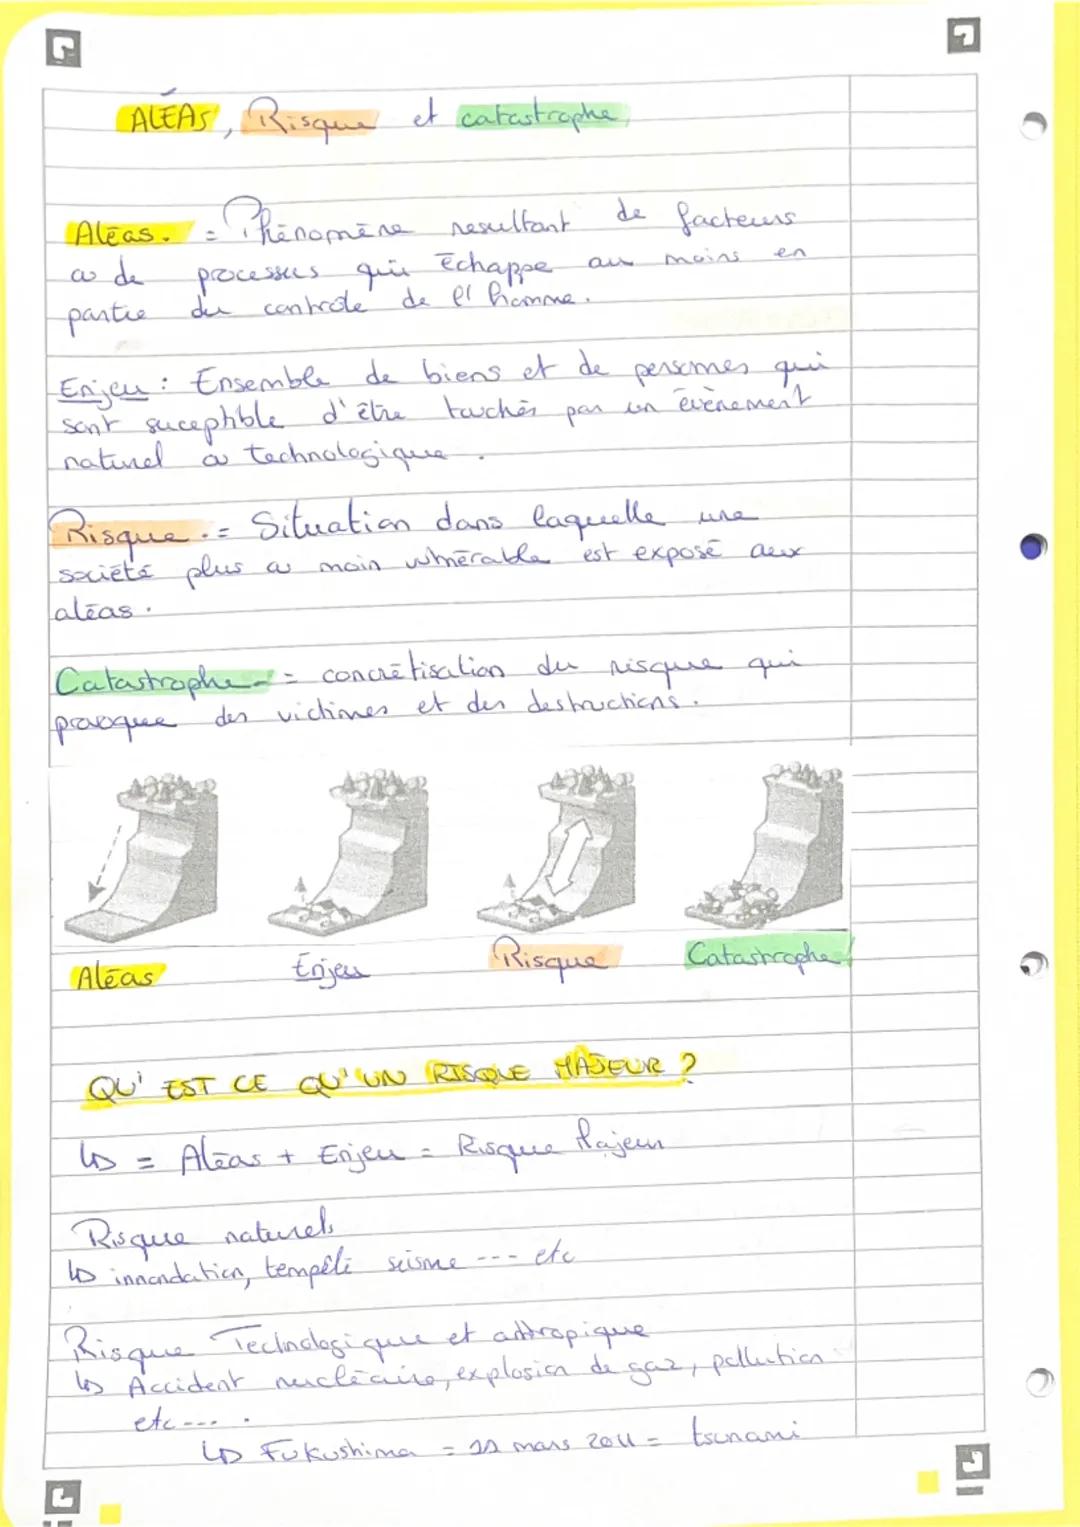 ALÉAS, Risque et catastrophe
Aléas. = Phénomène resultant de facteurs
ou de processus qui échappe au moins en
partie du contrôle de l'homme.
Enjeu : Ensemble de biens et de personnes qui
sont suceptible d'être touchés par un évènement
naturel ou technologique.
Risque := Situation dans laquelle une
société plus ou moin vulnérable est exposé aux
aléas.
Catastrophe = concrétisation du risque qui
provoque des victimes et des destructions.
Aléas Enjeu Risque Catastrophe
QU'EST CE QU'UN RISQUE MAJEUR ?
↳ = Aléas + Enjeu = Risque Majeur
Risque naturels
↳ innondation, tempête seisme --- etc
Risque Technologique et antropique
↳ Accident nucléaire, explosion de gaz, pollution
etc--- .
↳ Fukushima = 11 mars 2011 = tsunami